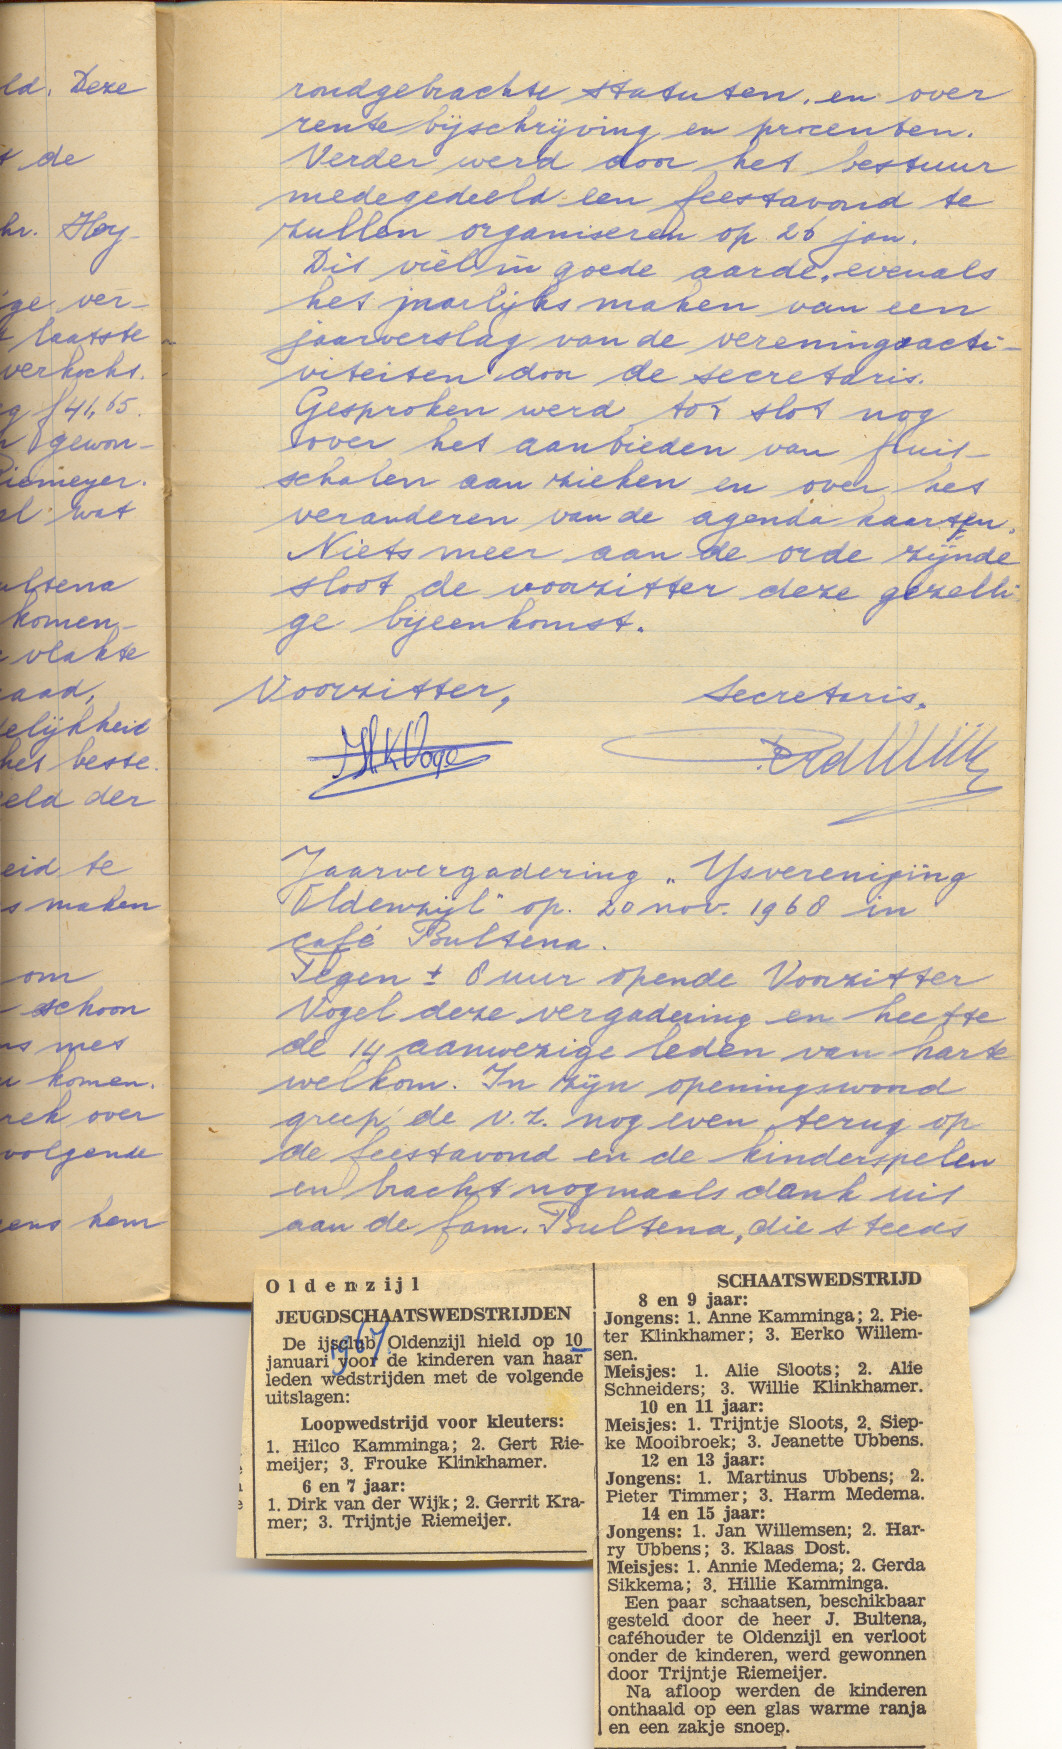 ld. Deze
de
hr. Hey-
ge ver-
laatste
verkocht.
f 41,65.
gewon-
Riemeyer.
wat
ultena
komen-
vlakte
raad,
elijkheid
het beste.
eld der
eid te
s maken
om
schoon
ns met
komen.
rek over
volgende
ens hem
rondgebrachte statuten, en over
rente bijschrijving en procenten.
Verder werd door het bestuur
medegedeeld een feestavond te
zullen organiseren op 26 jan.
Dit viel in goede aarde, evenals
het jaarlijks maken van een
jaarverslag van de vereningsacti-
viteiten door de secretaris.
Gesproken werd tot slot nog
over het aanbieden van fruit-
schalen aan zieken en over het
veranderen van de agenda kaarten.
Niets meer aan de orde zijnde
sloot de voorzitter deze gezelli
ge bijeenkomst.
Voorzitter, secretaris.
Jaarvergadering „IJsvereniging
Oldenzijl" op. 20 nov. 1968 in
café Bultena.
Tegen ± 8 uur opende Voorzitter
Vogel deze vergadering en heette
de 14 aanwezige leden van harte
welkom. In zijn openingswoord
greep de v.z. nog even terug op
de feestavond en de kinderspelen
en bracht nogmaals dank uit
aan de fam. Bultena, die steeds
Oldenzijl
JEUGDSCHAATSWEDSTRIJDEN
De ijsclub Oldenzijl hield op 10
1967
januari voor de kinderen van haar
leden wedstrijden met de volgende
uitslagen:
Loopwedstrijd voor kleuters:
1. Hilco Kamminga; 2. Gert Rie-
meijer; 3. Frouke Klinkhamer.
6 en 7 jaar:
1. Dirk van der Wijk; 2. Gerrit Kra-
mer; 3. Trijntje Riemeijer.
SCHAATSWEDSTRIJD
8 en 9 jaar:
Jongens: 1. Anne Kamminga; 2. Pie-
ter Klinkhamer; 3. Eerko Willem-
sen.
Meisjes: 1. Alie Sloots; 2. Alie
Schneiders; 3. Willie Klinkhamer.
10 en 11 jaar:
Meisjes: 1. Trijntje Sloots, 2. Siep-
ke Mooibroek; 3. Jeanette Ubbens.
12 en 13 jaar:
Jongens: 1. Martinus Ubbens; 2.
Pieter Timmer; 3. Harm Medema.
14 en 15 jaar:
Jongens: 1. Jan Willemsen; 2. Har-
ry Ubbens; 3. Klaas Dost.
Meisjes: 1. Annie Medema; 2. Gerda
Sikkema; 3. Hillie Kamminga.
Een paar schaatsen, beschikbaar
gesteld door de heer J. Bultena,
caféhouder te Oldenzijl en verloot
onder de kinderen, werd gewonnen
door Trijntje Riemeijer.
Na afloop werden de kinderen
onthaald op een glas warme ranja
en een zakje snoep.